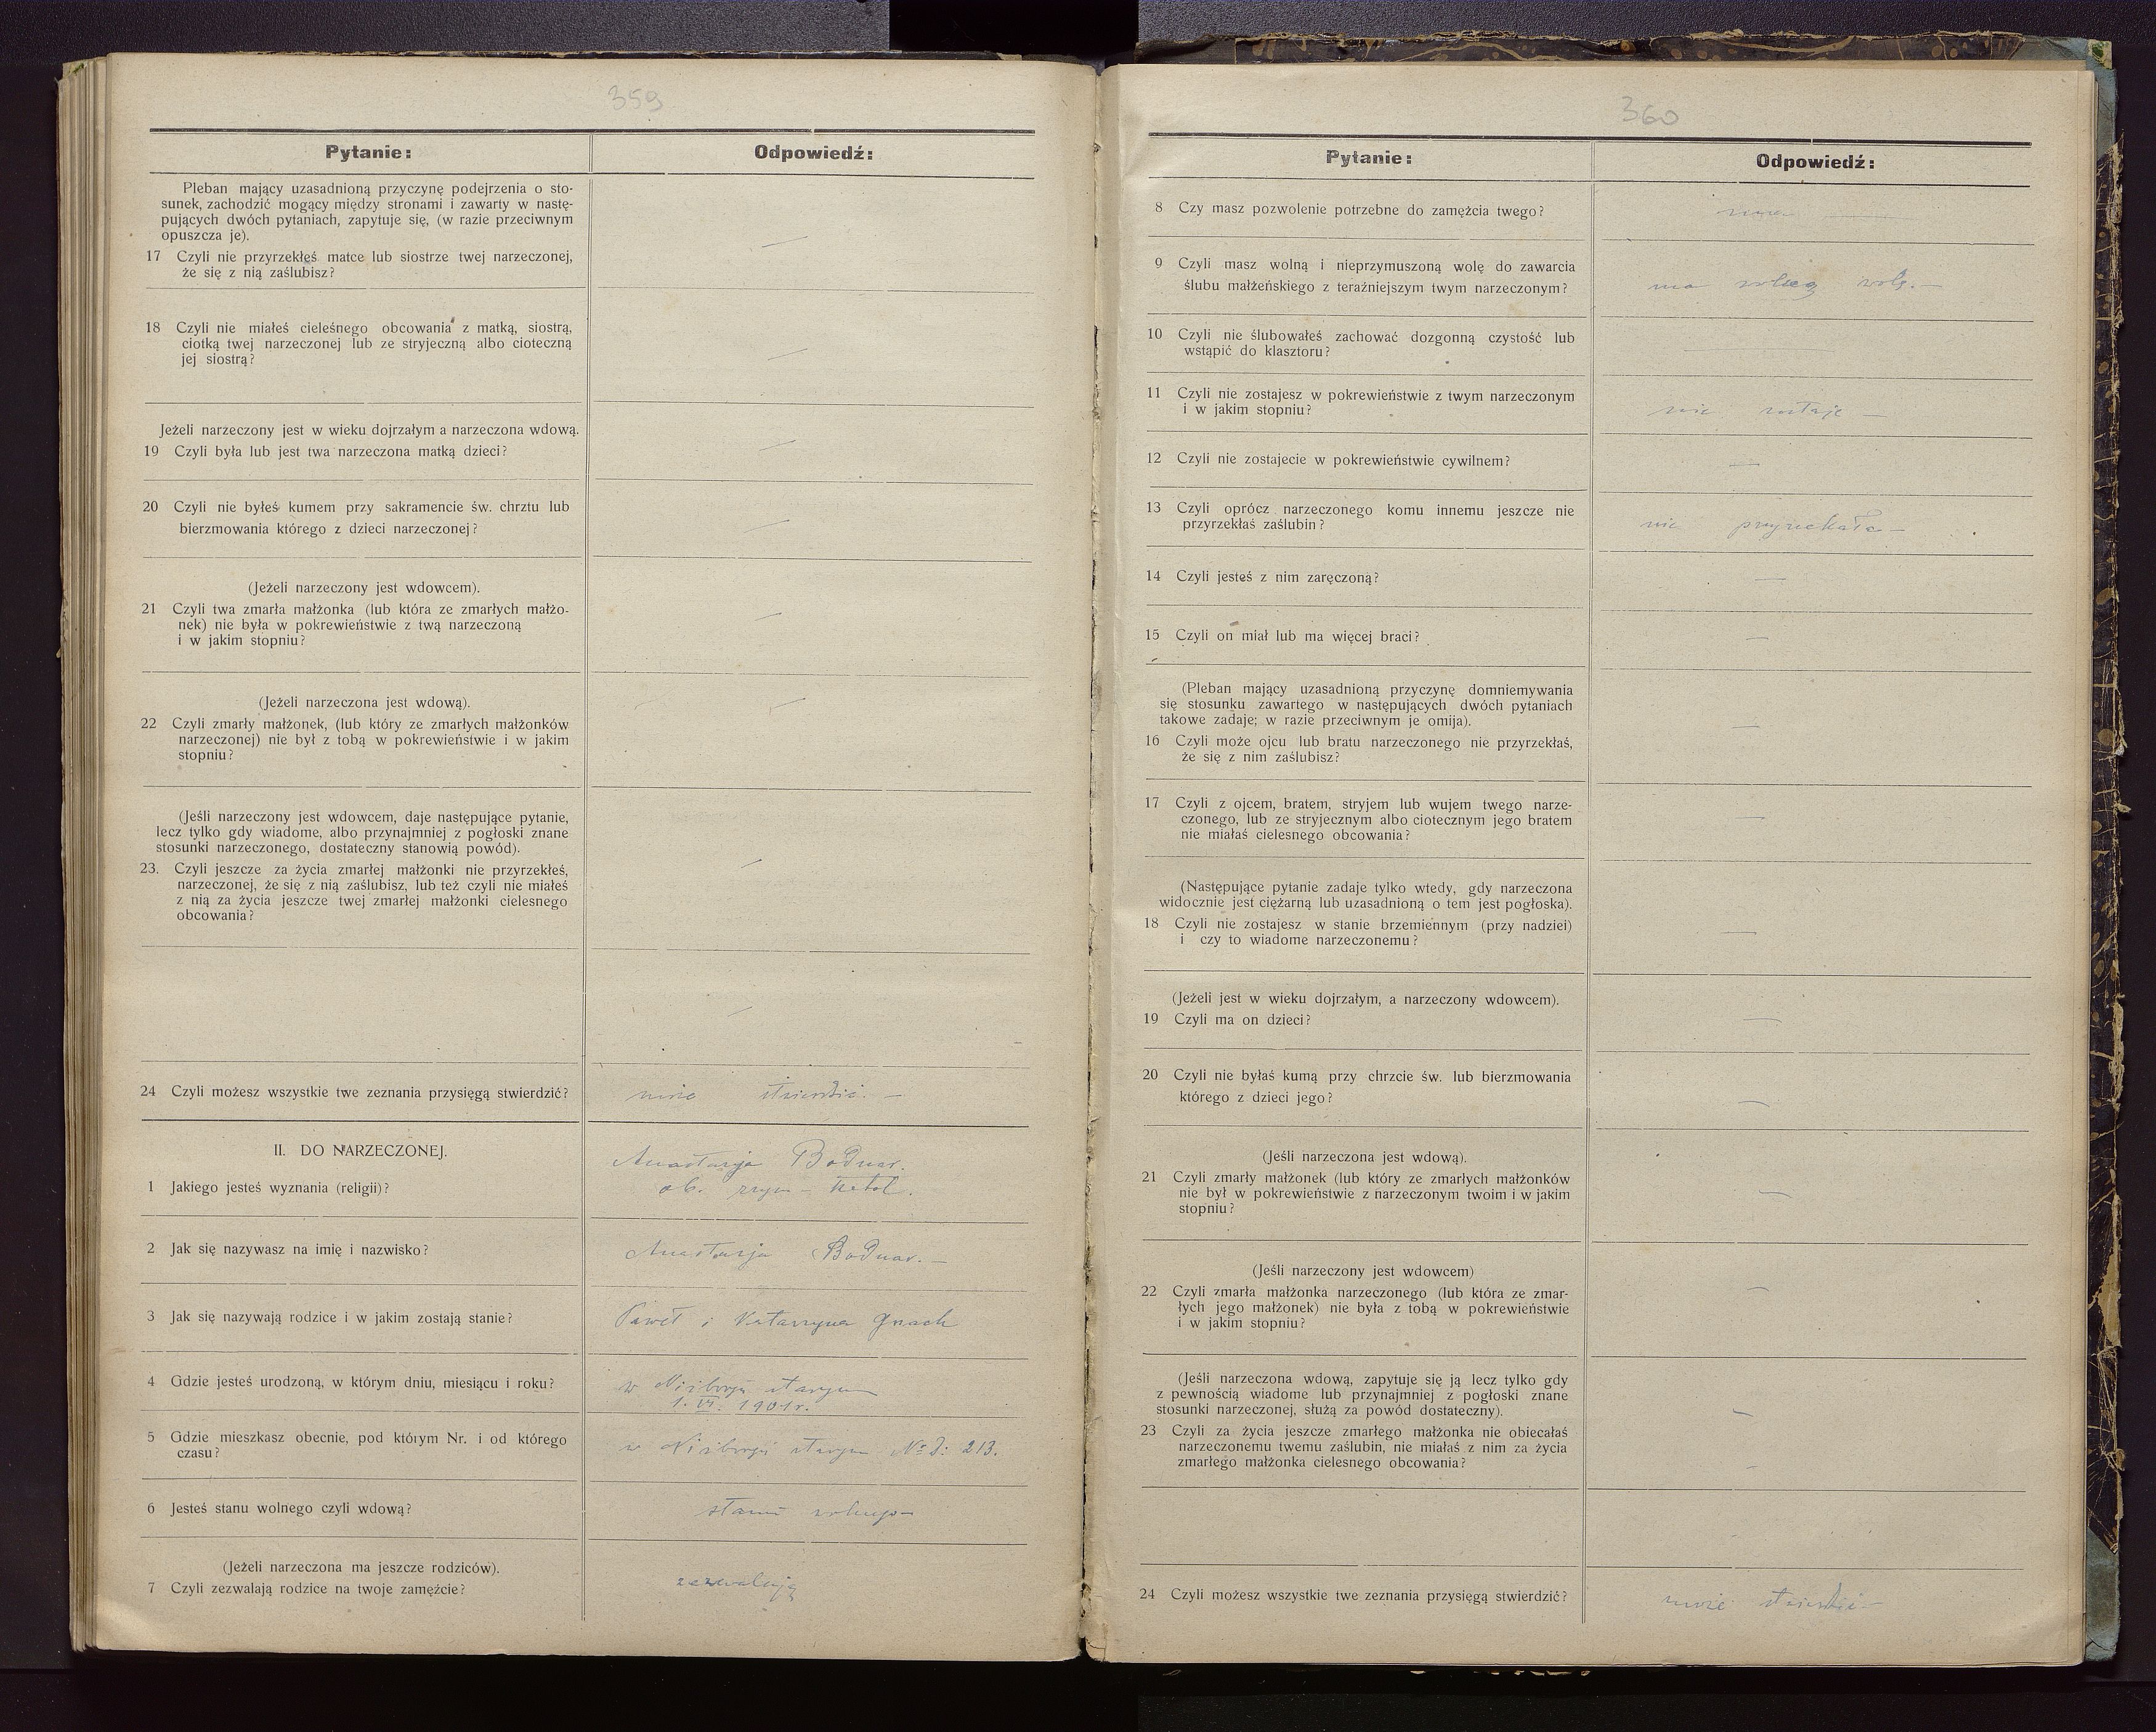 359
Pytanie:
Odpowiedź:
Pleban mający uzasadnioną przyczynę podejrzenia o sto-
sunek, zachodzić mogący między stronami i zawarty w nastę-
pujących dwóch pytaniach, zapytuje się, (w razie przeciwnym
opuszcza je).
17 Czyli nie przyrzekłeś matce lub siostrze twej narzeczonej,
że się z nią zaślubisz?
—
18 Czyli nie miałeś cieleśnego obcowania z matką, siostrą,
ciotką twej narzeczonej lub ze stryjeczną albo cioteczną
jej siostrą?
—
Jeżeli narzeczony jest w wieku dojrzałym a narzeczona wdową.
19 Czyli była lub jest twa narzeczona matką dzieci?
—
20 Czyli nie byłeś kumem przy sakramencie św. chrztu lub
bierzmowania którego z dzieci narzeczonej?
—
(Jeżeli narzeczony jest wdowcem).
21 Czyli twa zmarła małżonka (lub która ze zmarłych małżo-
nek) nie była w pokrewieństwie z twą narzeczoną
i w jakim stopniu?
—
(Jeżeli narzeczona jest wdową).
22 Czyli zmarły małżonek, (lub który ze zmarłych małżonków
narzeczonej) nie był z tobą w pokrewieństwie i w jakim
stopniu?
—
(Jeśli narzeczony jest wdowcem, daje następujące pytanie,
lecz tylko gdy wiadome, albo przynajmniej z pogłoski znane
stosunki narzeczonego, dostateczny stanowią powód).
23. Czyli jeszcze za życia zmarłej małżonki nie przyrzekłeś,
narzeczonej, że się z nią zaślubisz, lub też czyli nie miałeś
z nią za życia jeszcze twej zmarłej małżonki cielesnego
obcowania?
—
—
24 Czyli możesz wszystkie twe zeznania przysięgą stwierdzić?
może stwierdzić. —
II. DO NARZECZONEJ.
Anastazja Bodnar.
1 Jakiego jesteś wyznania (religii)?
ob. rzym - katol.
2 Jak się nazywasz na imię i nazwisko?
Anastazja Bodnar. —
3 Jak się nazywają rodzice i w jakim zostają stanie?
Paweł i Katarzyna Gnach
4 Gdzie jesteś urodzoną, w którym dniu, miesiącu i roku?
w Niżborgu starym
1. VI. 1901r.
5 Gdzie mieszkasz obecnie, pod którym Nr. i od którego
czasu?
w Niżborgu starym No d: 213.
6 Jesteś stanu wolnego czyli wdową?
stanu wolnego —
(Jeżeli narzeczona ma jeszcze rodziców).
7 Czyli zezwalają rodzice na twoje zamęźcie?
zezwalają
360
Pytanie:
Odpowiedź:
8 Czy masz pozwolenie potrzebne do zamężcia twego?
9 Czyli masz wolną i nieprzymuszoną wolę do zawarcia
ślubu małżeńskiego z teraźniejszym twym narzeczonym?
ma wolną wolę. —
10 Czyli nie ślubowałeś zachować dozgonną czystość lub
wstąpić do klasztoru?
—
11 Czyli nie zostajesz w pokrewieństwie z twym narzeczonym
i w jakim stopniu?
nie zostaje —
12 Czyli nie zostajecie w pokrewieństwie cywilnem?
—
13 Czyli oprócz narzeczonego komu innemu jeszcze nie
przyrzekłaś zaślubin?
nie przyrzekała —
14 Czyli jesteś z nim zaręczoną?
—
15 Czyli on miał lub ma więcej braci?
—
(Pleban mający uzasadnioną przyczynę domniemywania
się stosunku zawartego w następujących dwóch pytaniach
takowe zadaje; w razie przeciwnym je omija).
—
16 Czyli może ojcu lub bratu narzeczonego nie przyrzekłaś,
że się z nim zaślubisz?
17 Czyli z ojcem, bratem, stryjem lub wujem twego narze-
czonego, lub ze stryjecznym albo ciotecznym jego bratem
nie miałaś cielesnego obcowania?
—
(Następujące pytanie zadaje tylko wtedy, gdy narzeczona
widocznie jest ciężarną lub uzasadnioną o tem jest pogłoska).
18 Czyli nie zostajesz w stanie brzemiennym (przy nadziei)
i czy to wiadome narzeczonemu?
—
(Jeżeli jest w wieku dojrzałym, a narzeczony wdowcem).
19 Czyli ma on dzieci?
—
20 Czyli nie byłaś kumą przy chrzcie św. lub bierzmowania
którego z dzieci jego?
—
(Jeśli narzeczona jest wdową).
21 Czyli zmarły małżonek (lub który ze zmarłych małżonków
nie był w pokrewieństwie z narzeczonym twoim i w jakim
stopniu?
—
(Jeśli narzeczony jest wdowcem)
22 Czyli zmarła małżonka narzeczonego (lub która ze zmar-
łych jego małżonek) nie była z tobą w pokrewieństwie
i w jakim stopniu?
—
(Jeśli narzeczona wdową, zapytuje się ją lecz tylko gdy
z pewnością wiadome lub przynajmniej z pogłoski znane
stosunki narzeczonej, służą za powód dostateczny).
—
23 Czyli za życia jeszcze zmarłego małżonka nie obiecałaś
narzeczonemu twemu zaślubin, nie miałaś z nim za życia
zmarłego małżonka cielesnego obcowania?
—
24 Czyli możesz wszystkie twe zeznania przysięgą stwierdzić?
może stwierdzić —